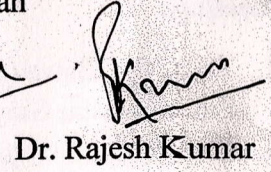 an
Dr. Rajesh Kumar